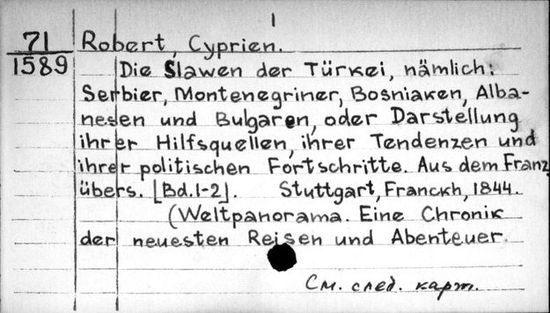 1
71 Robert, Cyprien.
1589 Die Slawen der Türkei, nämlich:
Serbier, Montenegriner, Bosniaken, Alba-
nesen und Bulgaren, oder Darstellung
ihrer Hilfsquellen, ihrer Tendenzen und
ihrer politischen Fortschritte. Aus dem Franz
übers. [Bd.1-2]. Stuttgart, Franckh, 1844.
(Weltpanorama. Eine Chronik
der neuesten Reisen und Abenteuer.
См. след. карт.